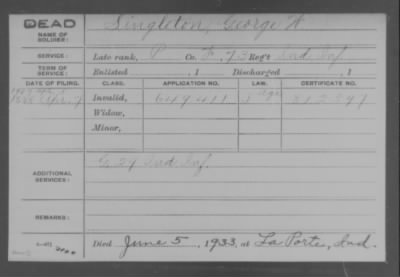 DEAD
NAME OF SOLDIER: Singleton, George W
SERVICE: Late rank, P Co. F, 73 Reg't Ind Inf.
TERM OF SERVICE: Enlisted , 1 Discharged , 1
DATE OF FILING. CLASS. APPLICATION NO. LAW. CERTIFICATE NO.
1888 Apr. 7 Invalid, 649411
Widow,
Minor,
ADDITIONAL SERVICES: G 29 Ind Inf.
REMARKS:
Died June 5, 1933, at La Porte, Ind.